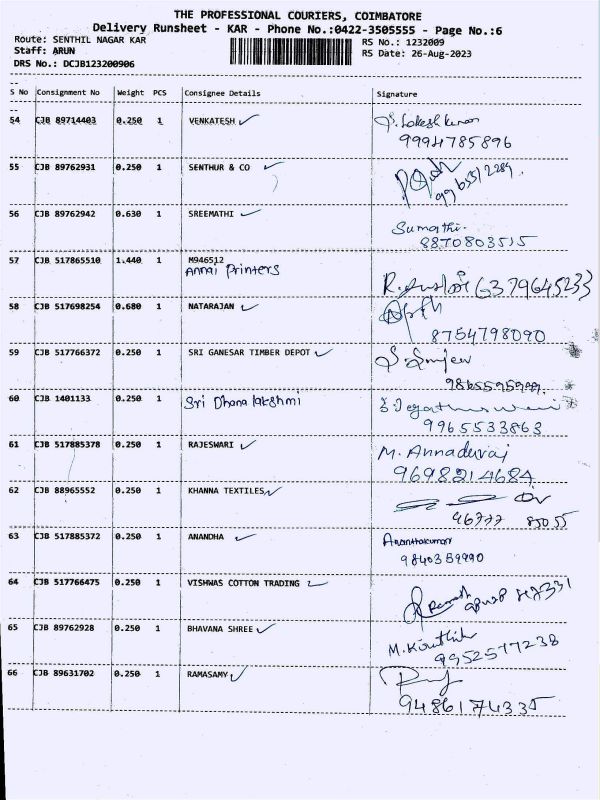 THE PROFESSIONAL COURIERS, COIMBATORE
Delivery Runsheet - KAR - Phone No.:0422-3505555 - Page No.:6
Route: SENTHIL NAGAR KAR
RS No.: 1232009
Staff: ARUN
RS Date: 26-Aug-2023
DRS No.: DCJB123200906
S No Consignment No Weight PCS Consignee Details Signature
54 CJB 89714403 0.250 1 VENKATESH S. Lokesh Kumar
9994785896
55 CJB 89762931 0.250 1 SENTHUR & CO
56 CJB 89762942 0.630 1 SREEMATHI Sumathi.
8870803515
57 CJB 517865510 1.440 1 M946512
Annai Printers
6379645233
58 CJB 517698254 0.680 1 NATARAJAN
8754798090
59 CJB 517766372 0.250 1 SRI GANESAR TIMBER DEPOT S. Sanjeev
9865595999.
60 CJB 1401133 0.250 1 Sri Dhana lakshmi
9965533863
61 CJB 517885378 0.250 1 RAJESWARI M. Annadurai
9698214684
62 CJB 88965552 0.250 1 KHANNA TEXTILES
46777 85055
63 CJB 517885372 0.250 1 ANANDHA Ananthakumar
9840359990
64 CJB 517766475 0.250 1 VISHWAS COTTON TRADING Ramesh
65 CJB 89762928 0.250 1 BHAVANA SHREE M. Kiruthik
9952577238
66 CJB 89631702 0.250 1 RAMASAMY
9486174335